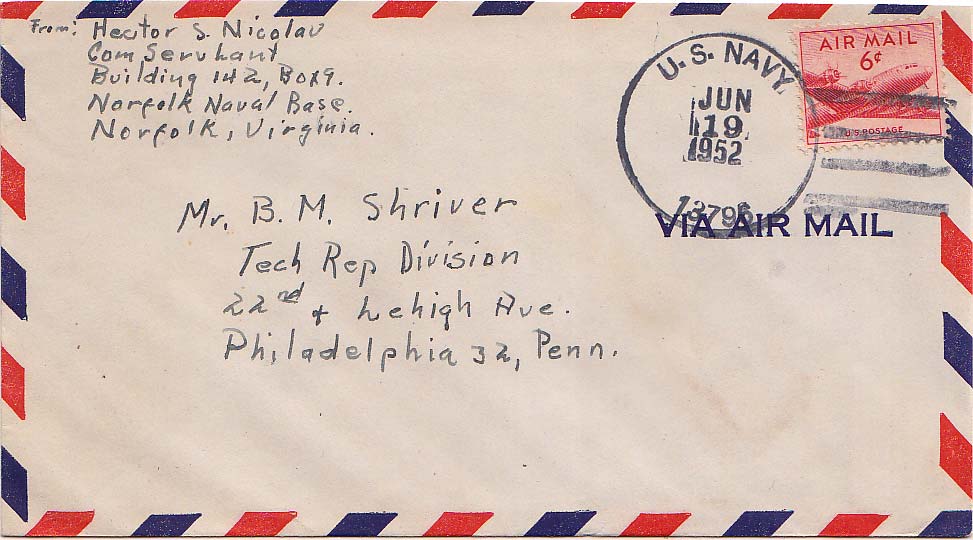 From: Hector S. Nicolau
Com Servlant
Building 142, Box 9.
Norfolk Naval Base.
Norfolk, Virginia.
U.S. NAVY
JUN
19
1952
13796
AIR MAIL
6¢
U.S. POSTAGE
VIA AIR MAIL
Mr. B. M. Shriver
Tech Rep Division
22nd + Lehigh Ave.
Philadelphia 32, Penn.